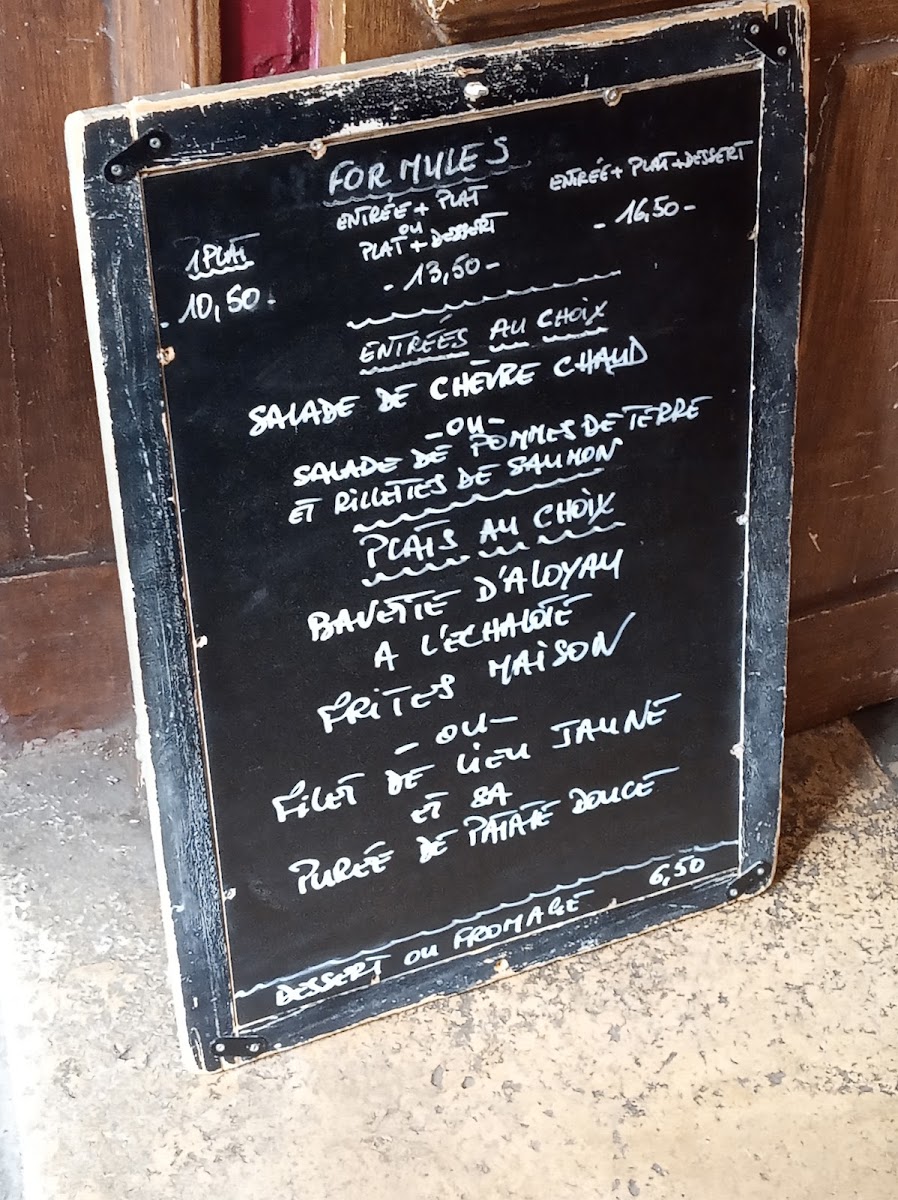 FORMULES
1 PLAT
- 10,50 -
ENTRÉE + PLAT
OU
PLAT + DESSERT
- 13,50 -
ENTRÉE + PLAT + DESSERT
- 16,50 -
ENTRÉES AU CHOIX
SALADE DE CHÈVRE CHAUD
- OU -
SALADE DE POMMES DE TERRE
ET RILLETTES DE SAUMON
PLATS AU CHOIX
BAVETTE D'ALOYAU
A L'ECHALOTE
FRITES MAISON
- OU -
FILET DE LIEU JAUNE
ET SA
PURÉE DE PATATE DOUCE
DESSERT OU FROMAGE 6,50